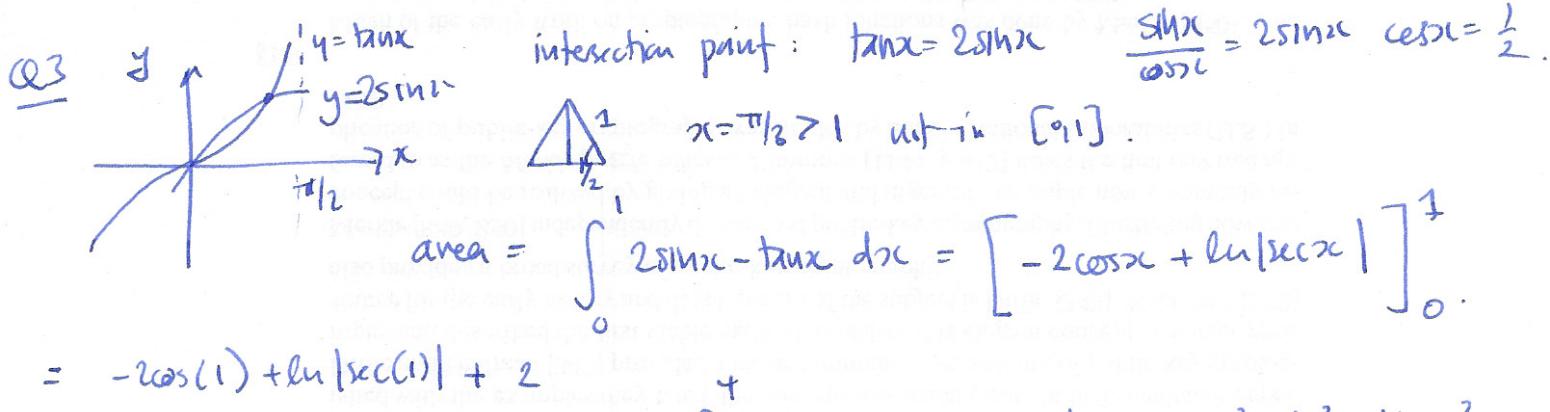 Q3 y y = tanx intersection point : tanx = 2sinx sinx/cosx = 2sinx cosx = 1/2.
y = 2sinx
1 x = π/3 > 1 not in [0,1].
x
π/2 1/2
area = ∫₀¹ 2sinx - tanx dx = [ -2cosx + ln|secx| ]₀¹.
= -2cos(1) + ln|sec(1)| + 2